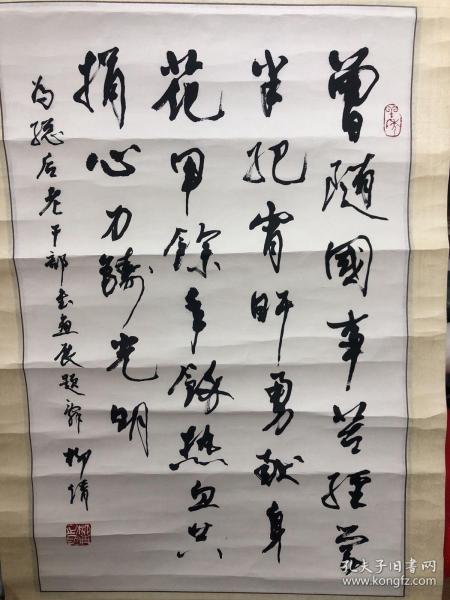 曾随國事苦經營
半紀宵旰勇献身
花甲餘年餘热血共
捐心力鑄光明
为总后老干部书画展题辞 柳倩
孔夫子旧书网
www.kongfz.com